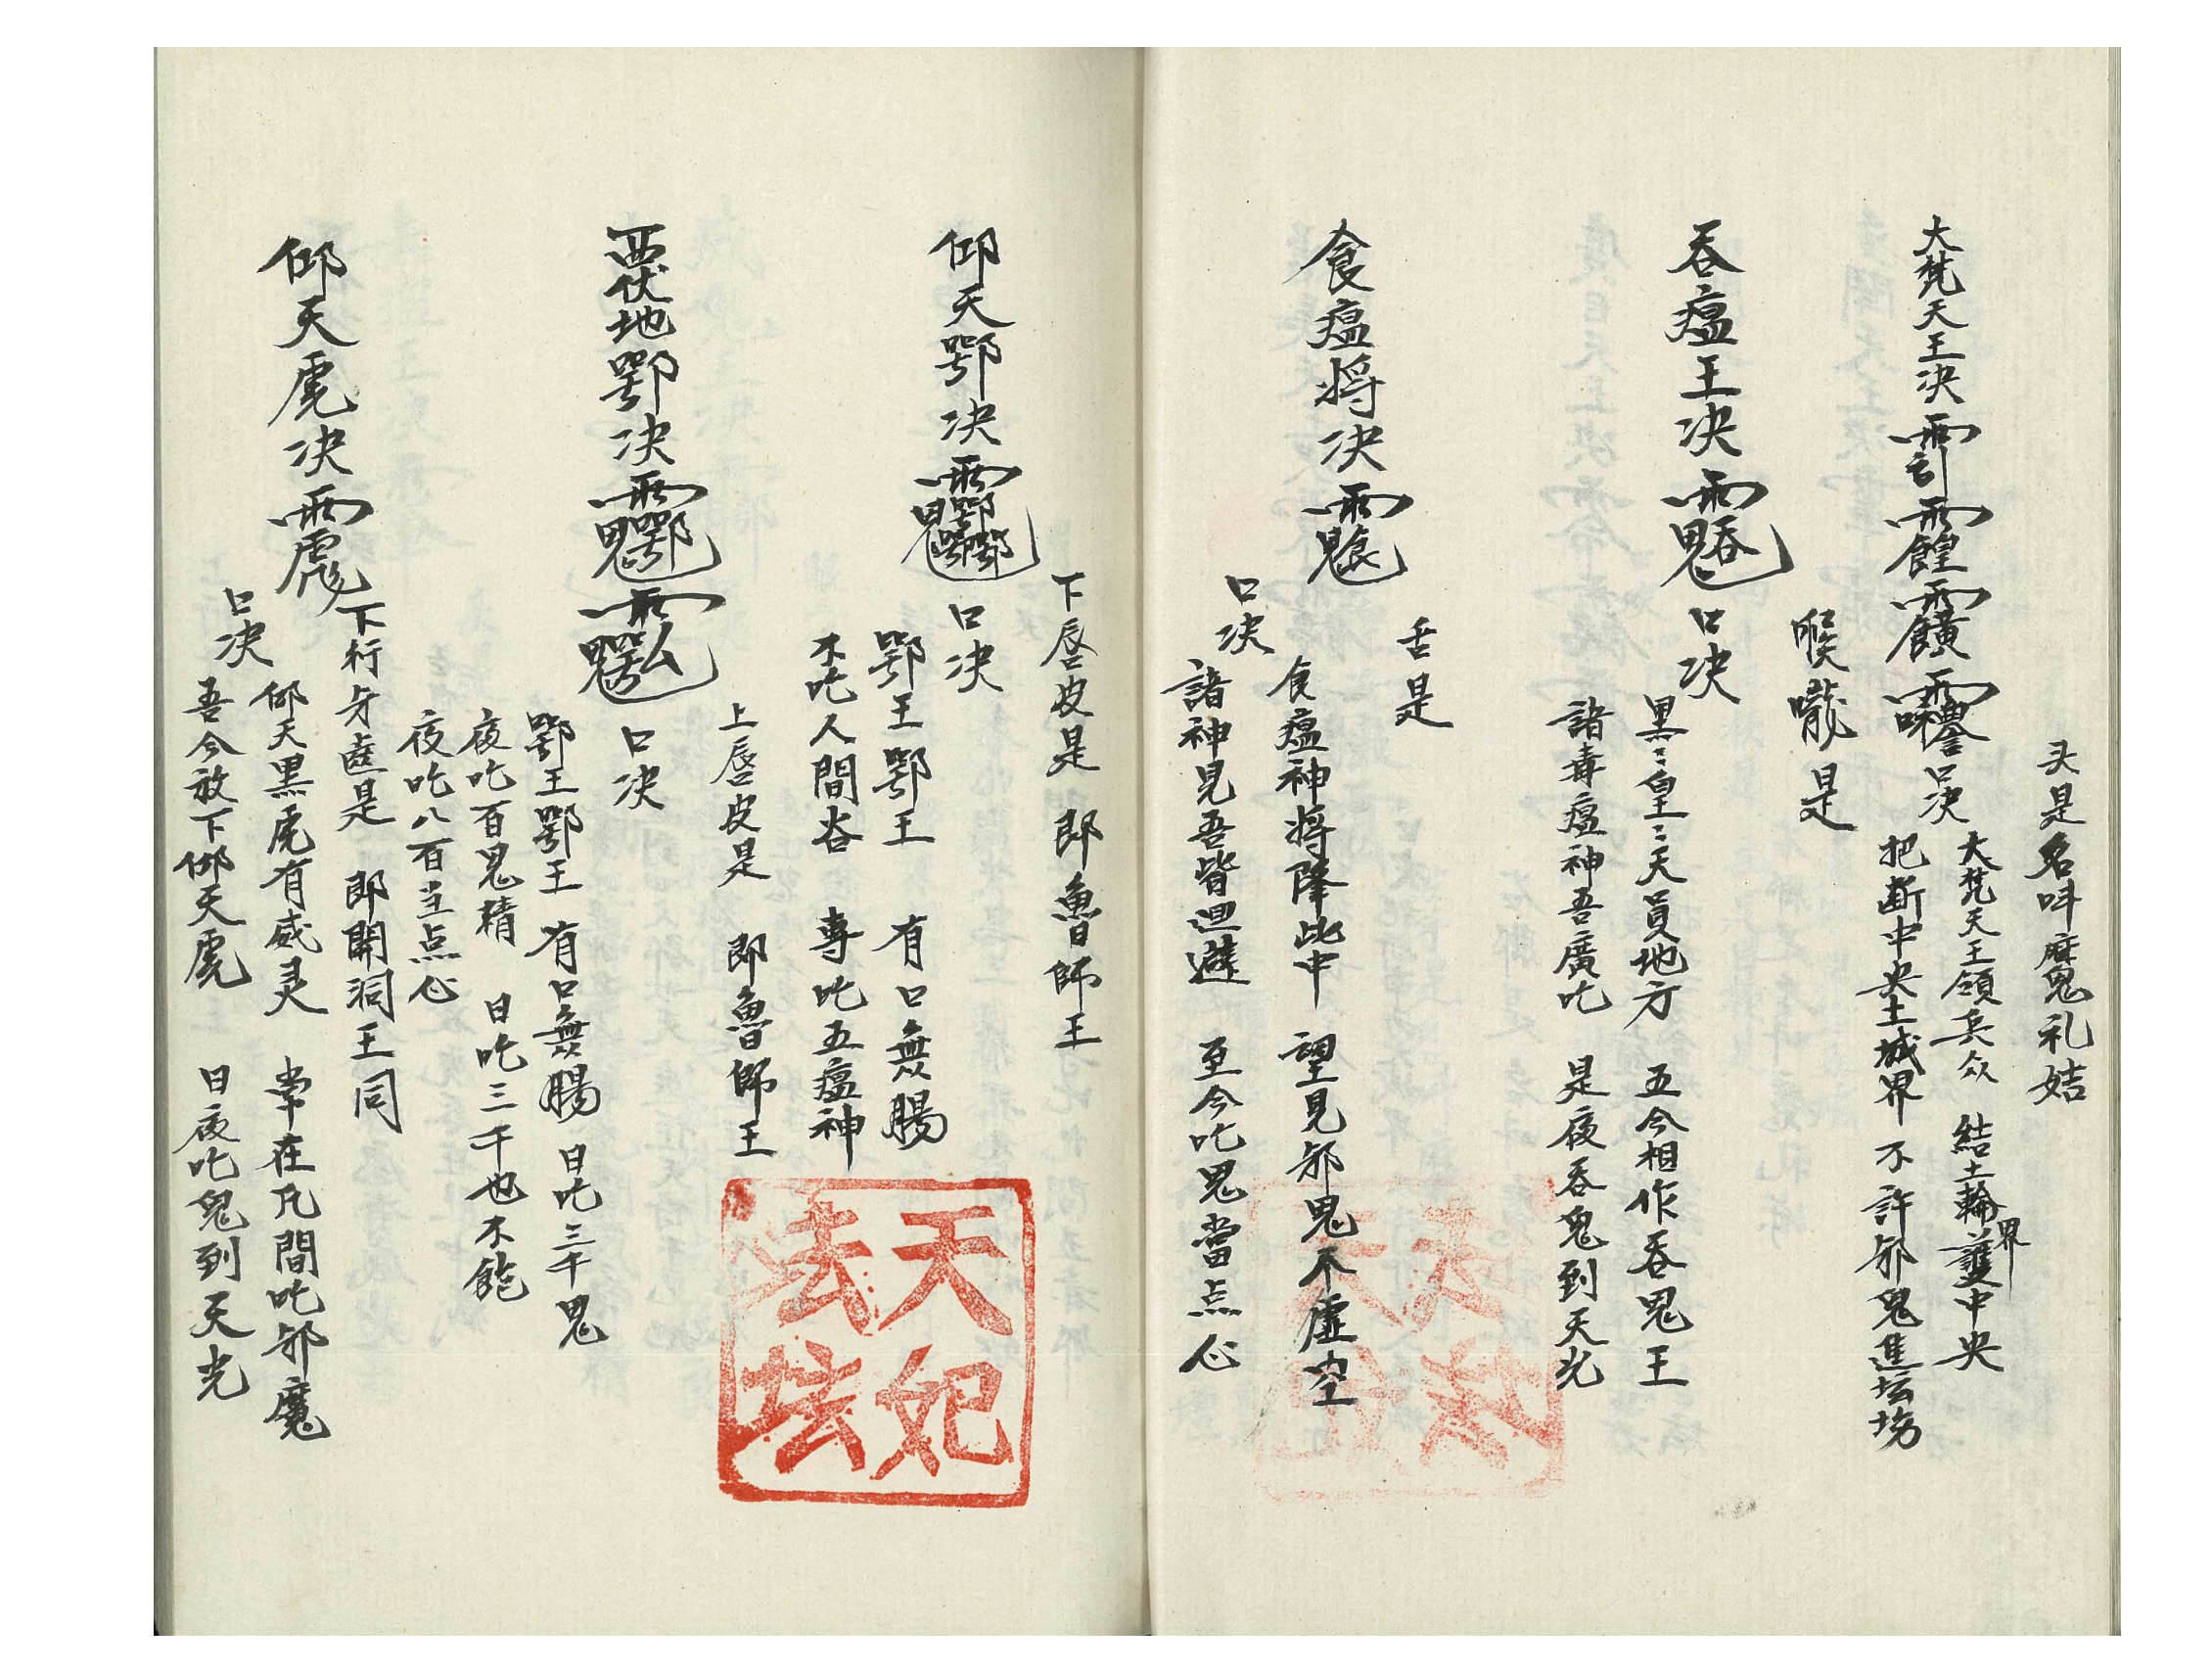 头是名呌麻鬼礼姞
大梵天王决
口决
大梵天王領兵众 結土輪界護中央
把断中央土城界 不許邪鬼進坛坊
喉嚨是
吞瘟王决
口决
黑〻皇〻天員地方 五今相作吞鬼王
諸毒瘟神吾廣吃 是夜吞鬼到天光
舌是
食瘟将决
口决
食瘟神将降此中 望見邪鬼不虚空
諸神見吾皆迴避 至今吃鬼當点心
下唇皮是 即魯師王
仰天鄂决
口决
鄂王鄂王 有口無腸
不吃人間谷 專吃五瘟神
上唇皮是 即魯師王
覆伏地鄂决
口决
鄂王鄂王 有口無腸 日吃三千鬼
夜吃百鬼精 日吃三千也不飽
夜吃八百当点心
下行牙齒是 即開洞王同
仰天虎决
口决
仰天黑虎有威灵 常在凡間吃邪魔
吾今放下仰天虎 日夜吃鬼到天光
天妃
法坛